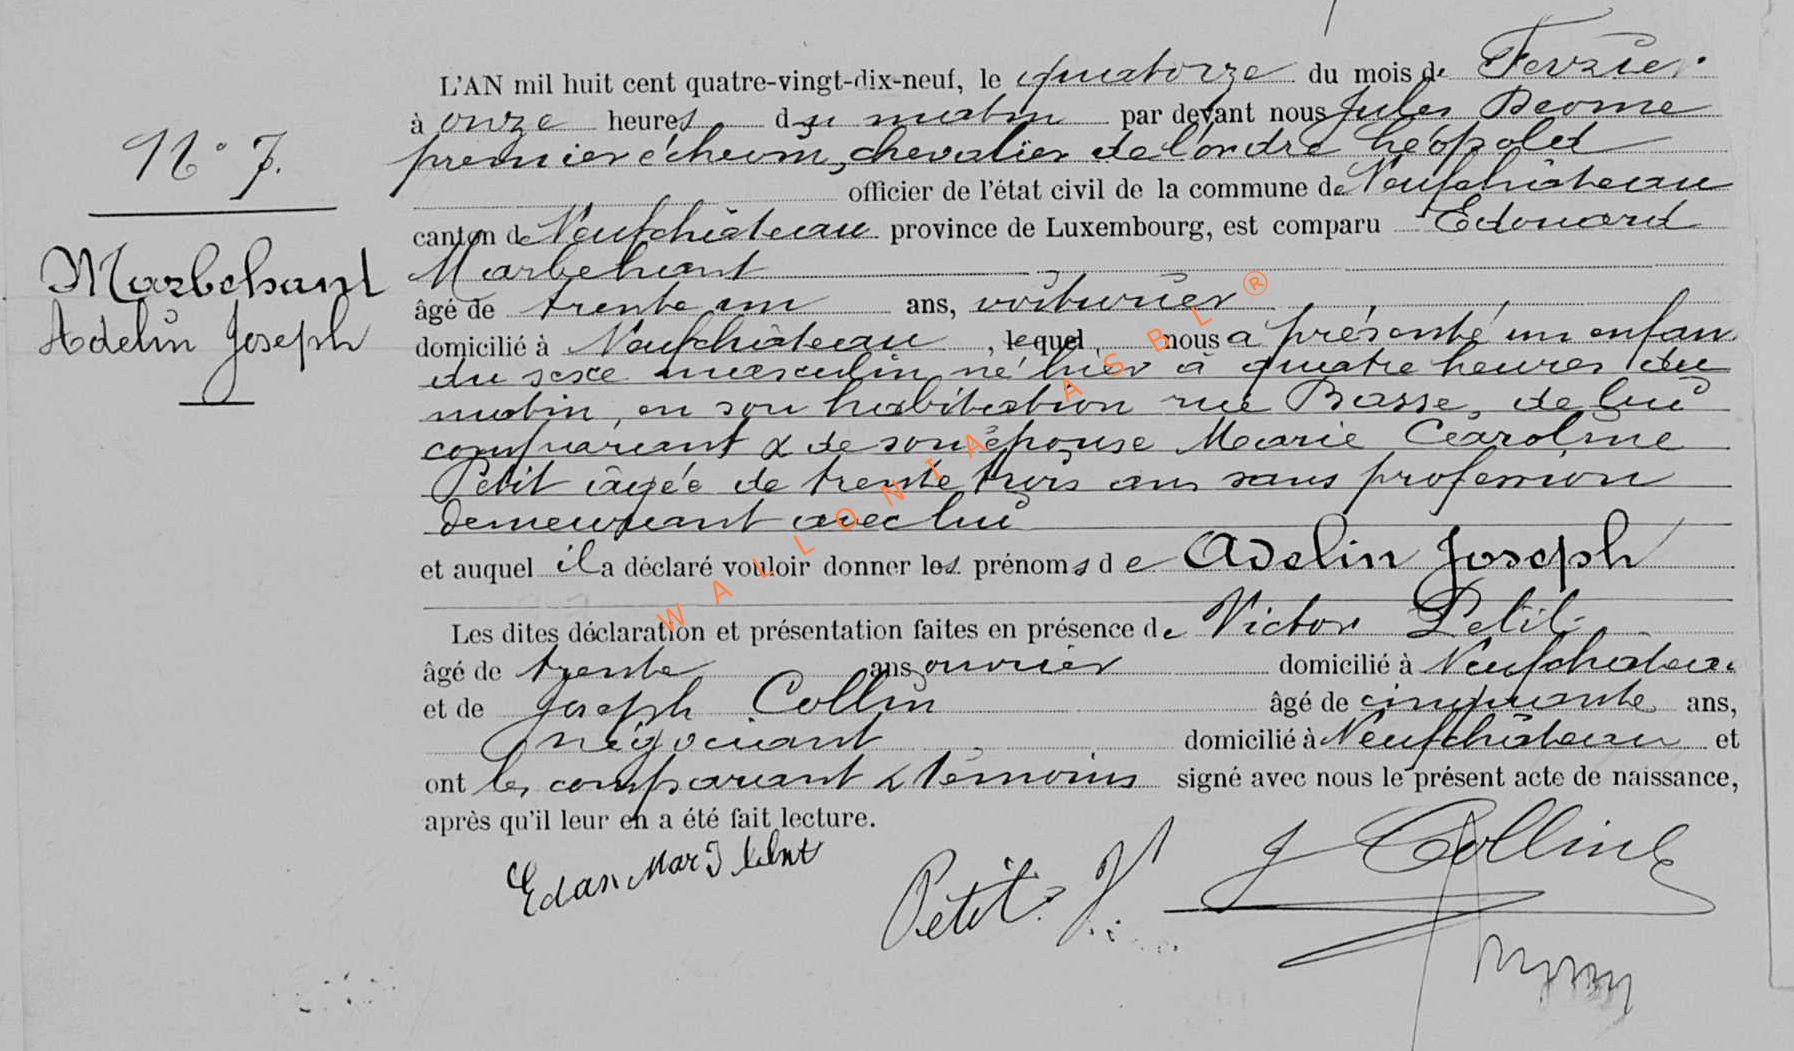 N° 7.
Marbehant
Adelin Joseph
L'AN mil huit cent quatre-vingt-dix-neuf, le quatorze du mois de Fevrier
à onze heures du matin par devant nous Jules Deome
premier échevin, chevalier de l'ordre Léopold
officier de l'état civil de la commune de Neufchâteau
canton de Neufchâteau province de Luxembourg, est comparu Edouard
Marbehant
âgé de trente un ans, voiturier
domicilié à Neufchâteau, lequel nous a présenté un enfan
du sexe masculin né hier à quatre heures du
matin, en son habitation rue Basse, de lui
comparant & de son épouse Marie Caroline
Petit âgée de trente trois ans sans profession
demeurant avec lui
et auquel il a déclaré vouloir donner les prénoms de Adelin Joseph
Les dites déclaration et présentation faites en présence de Victor Petit
âgé de trente ans ouvrier domicilié à Neufchateau
et de Joseph Collin âgé de cinquante ans,
négociant domicilié à Neufchâteau et
ont les comparant & témoins signé avec nous le présent acte de naissance,
après qu'il leur en a été fait lecture.
Petit V. J Collin
WALLONIA ASBL ®